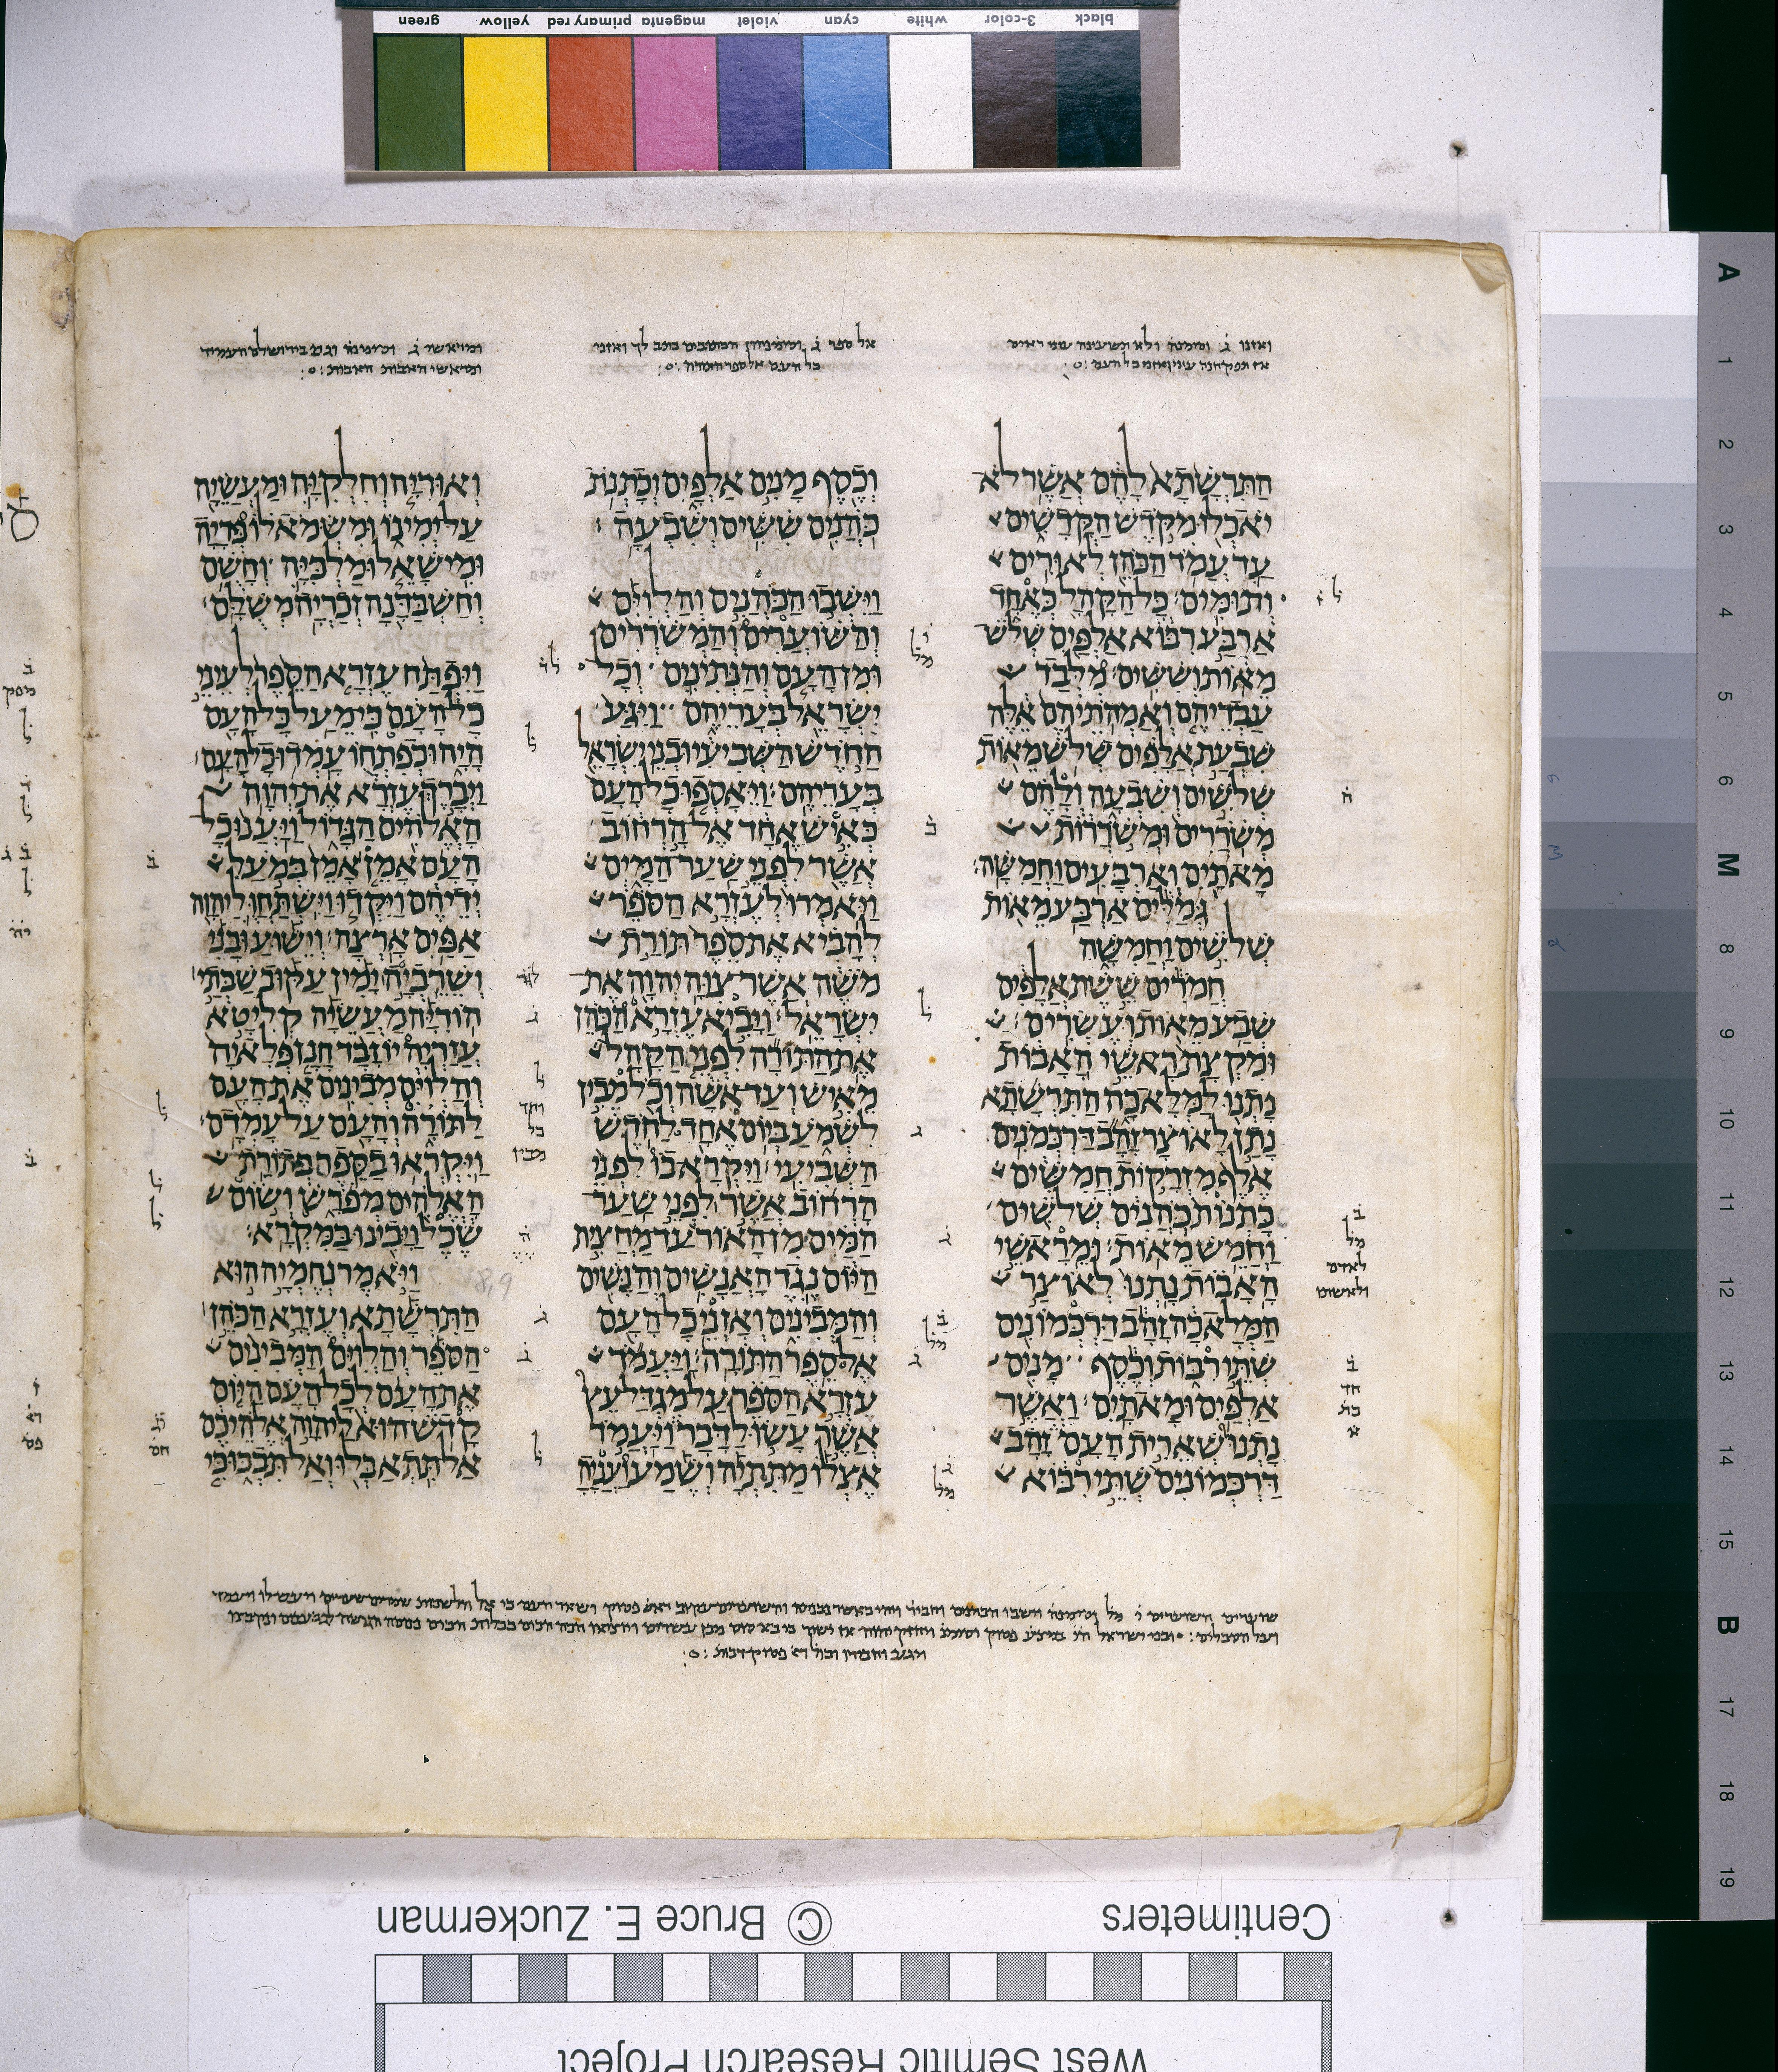 green yellow primary red magenta violet cyan white 3-color black
ואזנו ג̇ וסימנה ולא תשעינה עיני ראים
אז תפקחנה עיני ואזני כל העם
הַתִּרְשָׁתָא לָהֶם אֲשֶׁר לֹא
יֹאכְלוּ מִקֹּדֶשׁ הַקֳּדָשִׁים
עַד עֲמֹד הַכֹּהֵן לְאוּרִים
וְתוּמִּים׃ כָּל הַקָּהָל כְּאֶחָד
אַרְבַּע רִבּוֹא אַלְפַּיִם שְׁלֹשׁ
מֵאוֹת וְשִׁשִּׁים׃ מִלְּבַד
עַבְדֵיהֶם וְאַמְהֹתֵיהֶם אֵלֶּה
שִׁבְעַת אֲלָפִים שְׁלֹשׁ מֵאוֹת
שְׁלֹשִׁים וְשִׁבְעָה וְלָהֶם
מְשֹׁרֲרִים וּמְשֹׁרֲרוֹת
מָאתַיִם וְאַרְבָּעִים וַחֲמִשָּׁה׃
גְּמַלִּים אַרְבַּע מֵאוֹת
שְׁלֹשִׁים וַחֲמִשָּׁה
חֲמֹרִים שֵׁשֶׁת אֲלָפִים
שְׁבַע מֵאוֹת וְעֶשְׂרִים׃
וּמִקְצָת רָאשֵׁי הָאָבוֹת
נָתְנוּ לַמְּלָאכָה הַתִּרְשָׁתָא
נָתַן לָאוֹצָר זָהָב דַּרְכְּמֹנִים
אֶלֶף מִזְרָקוֹת חֲמִשִּׁים
כָּתְנוֹת כֹּהֲנִים שְׁלֹשִׁים
וַחֲמֵשׁ מֵאוֹת׃ וּמֵרָאשֵׁי
הָאָבוֹת נָתְנוּ לְאוֹצַר
הַמְּלָאכָה זָהָב דַּרְכְּמוֹנִים
שְׁתֵּי רִבּוֹת וְכֶסֶף מָנִים
אַלְפַּיִם וּמָאתָיִם׃ וַאֲשֶׁר
נָתְנוּ שְׁאֵרִית הָעָם זָהָב
דַּרְכְּמוֹנִים שְׁתֵּי רִבּוֹא
אל ספר ג̇
כל העם אל ספר התורה
וְכֶסֶף מָנִים אַלְפָּיִם וְכָתְנֹת
כֹּהֲנִים שִׁשִּׁים וְשִׁבְעָה׃
וַיֵּשְׁבוּ הַכֹּהֲנִים וְהַלְוִיִּם
וְהַשּׁוֹעֲרִים וְהַמְשֹׁרְרִים
וּמִן הָעָם וְהַנְּתִינִים וְכָל
יִשְׂרָאֵל בְּעָרֵיהֶם וַיִּגַּע
הַחֹדֶשׁ הַשְּׁבִיעִי וּבְנֵי יִשְׂרָאֵל
בְּעָרֵיהֶם׃ וַיֵּאָסְפוּ כָל הָעָם
כְּאִישׁ אֶחָד אֶל הָרְחוֹב
אֲשֶׁר לִפְנֵי שַׁעַר הַמָּיִם
וַיֹּאמְרוּ לְעֶזְרָא הַסֹּפֵר
לְהָבִיא אֶת סֵפֶר תּוֹרַת
מֹשֶׁה אֲשֶׁר צִוָּה יְהוָה אֶת
יִשְׂרָאֵל׃ וַיָּבִיא עֶזְרָא הַכֹּהֵן
אֶת הַתּוֹרָה לִפְנֵי הַקָּהָל
מֵאִישׁ וְעַד אִשָּׁה וְכֹל מֵבִין
לִשְׁמֹעַ בְּיוֹם אֶחָד לַחֹדֶשׁ
הַשְּׁבִיעִי׃ וַיִּקְרָא בוֹ לִפְנֵי
הָרְחוֹב אֲשֶׁר לִפְנֵי שַׁעַר
הַמַּיִם מִן הָאוֹר עַד מַחֲצִית
הַיּוֹם נֶגֶד הָאֲנָשִׁים וְהַנָּשִׁים
וְהַמְּבִינִים וְאָזְנֵי כָל הָעָם
אֶל סֵפֶר הַתּוֹרָה׃ וַיַּעֲמֹד
עֶזְרָא הַסֹּפֵר עַל מִגְדַּל עֵץ
אֲשֶׁר עָשׂוּ לַדָּבָר וַיַּעֲמֹד
אֶצְלוֹ מַתִּתְיָה וְשֶׁמַע וַעֲנָיָה
ומראשי ג̇ וסימנה וגם בירושלם העמיד
ומראשי האבות האבות
וְאוּרִיָּה וְחִלְקִיָּה וּמַעֲשֵׂיָה
עַל יְמִינוֹ וּמִשְּׂמֹאלוֹ פְּדָיָה
וּמִישָׁאֵל וּמַלְכִּיָּה וְחָשֻׁם
וְחַשְׁבַּדָּנָה זְכַרְיָה מְשֻׁלָּם׃
וַיִּפְתַּח עֶזְרָא הַסֵּפֶר לְעֵינֵי
כָל הָעָם כִּי מֵעַל כָּל הָעָם
הָיָה וּכְפִתְחוֹ עָמְדוּ כָל הָעָם׃
וַיְבָרֶךְ עֶזְרָא אֶת יְהוָה
הָאֱלֹהִים הַגָּדוֹל וַיַּעֲנוּ כָל
הָעָם אָמֵן אָמֵן בְּמֹעַל
יְדֵיהֶם וַיִּקְּדוּ וַיִּשְׁתַּחֲוֻּ לַיהוָה
אַפַּיִם אָרְצָה׃ וְיֵשׁוּעַ וּבָנִי
וְשֵׁרֵבְיָה יָמִין עַקּוּב שַׁבְּתַי
הוֹדִיָּה מַעֲשֵׂיָה קְלִיטָא
עֲזַרְיָה יוֹזָבָד חָנָן פְּלָאיָה
וְהַלְוִיִּם מְבִינִים אֶת הָעָם
לַתּוֹרָה וְהָעָם עַל עָמְדָם׃
וַיִּקְרְאוּ בַסֵּפֶר בְּתוֹרַת
הָאֱלֹהִים מְפֹרָשׁ וְשׂוֹם
שֶׂכֶל וַיָּבִינוּ בַּמִּקְרָא׃
וַיֹּאמֶר נְחֶמְיָה הוּא
8,9
הַתִּרְשָׁתָא וְעֶזְרָא הַכֹּהֵן
הַסֹּפֵר וְהַלְוִיִּם הַמְּבִינִים
אֶת הָעָם לְכָל הָעָם הַיּוֹם
קָדֹשׁ הוּא לַיהוָה אֱלֹהֵיכֶם
אַל תִּתְאַבְּלוּ וְאַל תִּבְכּוּ כִּי
Centimeters
© Bruce E. Zuckerman
West Semitic Research Project
A
1
2
3
4
5
6
M
8
9
10
11
12
13
14
15
B
17
18
19